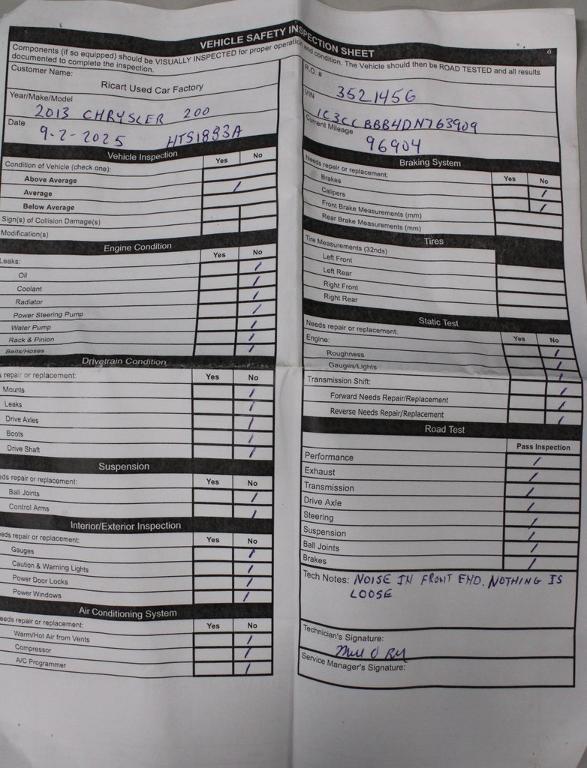 VEHICLE SAFETY INSPECTION SHEET
Components (if so equipped) should be VISUALLY INSPECTED for proper operation and condition. The Vehicle should then be ROAD TESTED and all results
documented to complete the inspection.
Customer Name:
Ricart Used Car Factory
Year/Make/Model
2013 CHRYSLER 200
Date
9-2-2025 HTS1893A
Vehicle Inspection Yes No
Condition of Vehicle (check one):
Above Average
Average /
Below Average
Sign(s) of Collision Damage(s)
Modification(s)
Engine Condition Yes No
Leaks:
Oil /
Coolant /
Radiator /
Power Steering Pump /
Water Pump /
Rack & Pinion /
Belts/Hoses /
Drivetrain Condition
repair or replacement: Yes No
Mounts /
Leaks /
Drive Axles /
Boots /
Drive Shaft /
Suspension
eds repair or replacement: Yes No
Ball Joints /
Control Arms /
Interior/Exterior Inspection
eds repair or replacement: Yes No
Gauges /
Caution & Warning Lights /
Power Door Locks /
Power Windows /
Air Conditioning System
eeds repair or replacement: Yes No
Warm/Hot Air from Vents /
Compressor /
A/C Programmer /
R.O. #
3521456
VIN
1C3CCBBB4DN763909
Current Mileage
96904
Braking System
Needs repair or replacement: Yes No
Brakes /
Calipers /
Front Brake Measurements (mm)
Rear Brake Measurements (mm)
Tires
Tire Measurements (32nds)
Left Front
Left Rear
Right Front
Right Rear
Static Test
Needs repair or replacement: Yes No
Engine:
Roughness /
Gauges/Lights /
Transmission Shift:
Forward Needs Repair/Replacement /
Reverse Needs Repair/Replacement /
Road Test
Pass Inspection
Performance /
Exhaust /
Transmission /
Drive Axle /
Steering /
Suspension /
Ball Joints /
Brakes /
Tech Notes: NOISE IN FRONT END. NOTHING IS
LOOSE
Technician's Signature:
Service Manager's Signature: